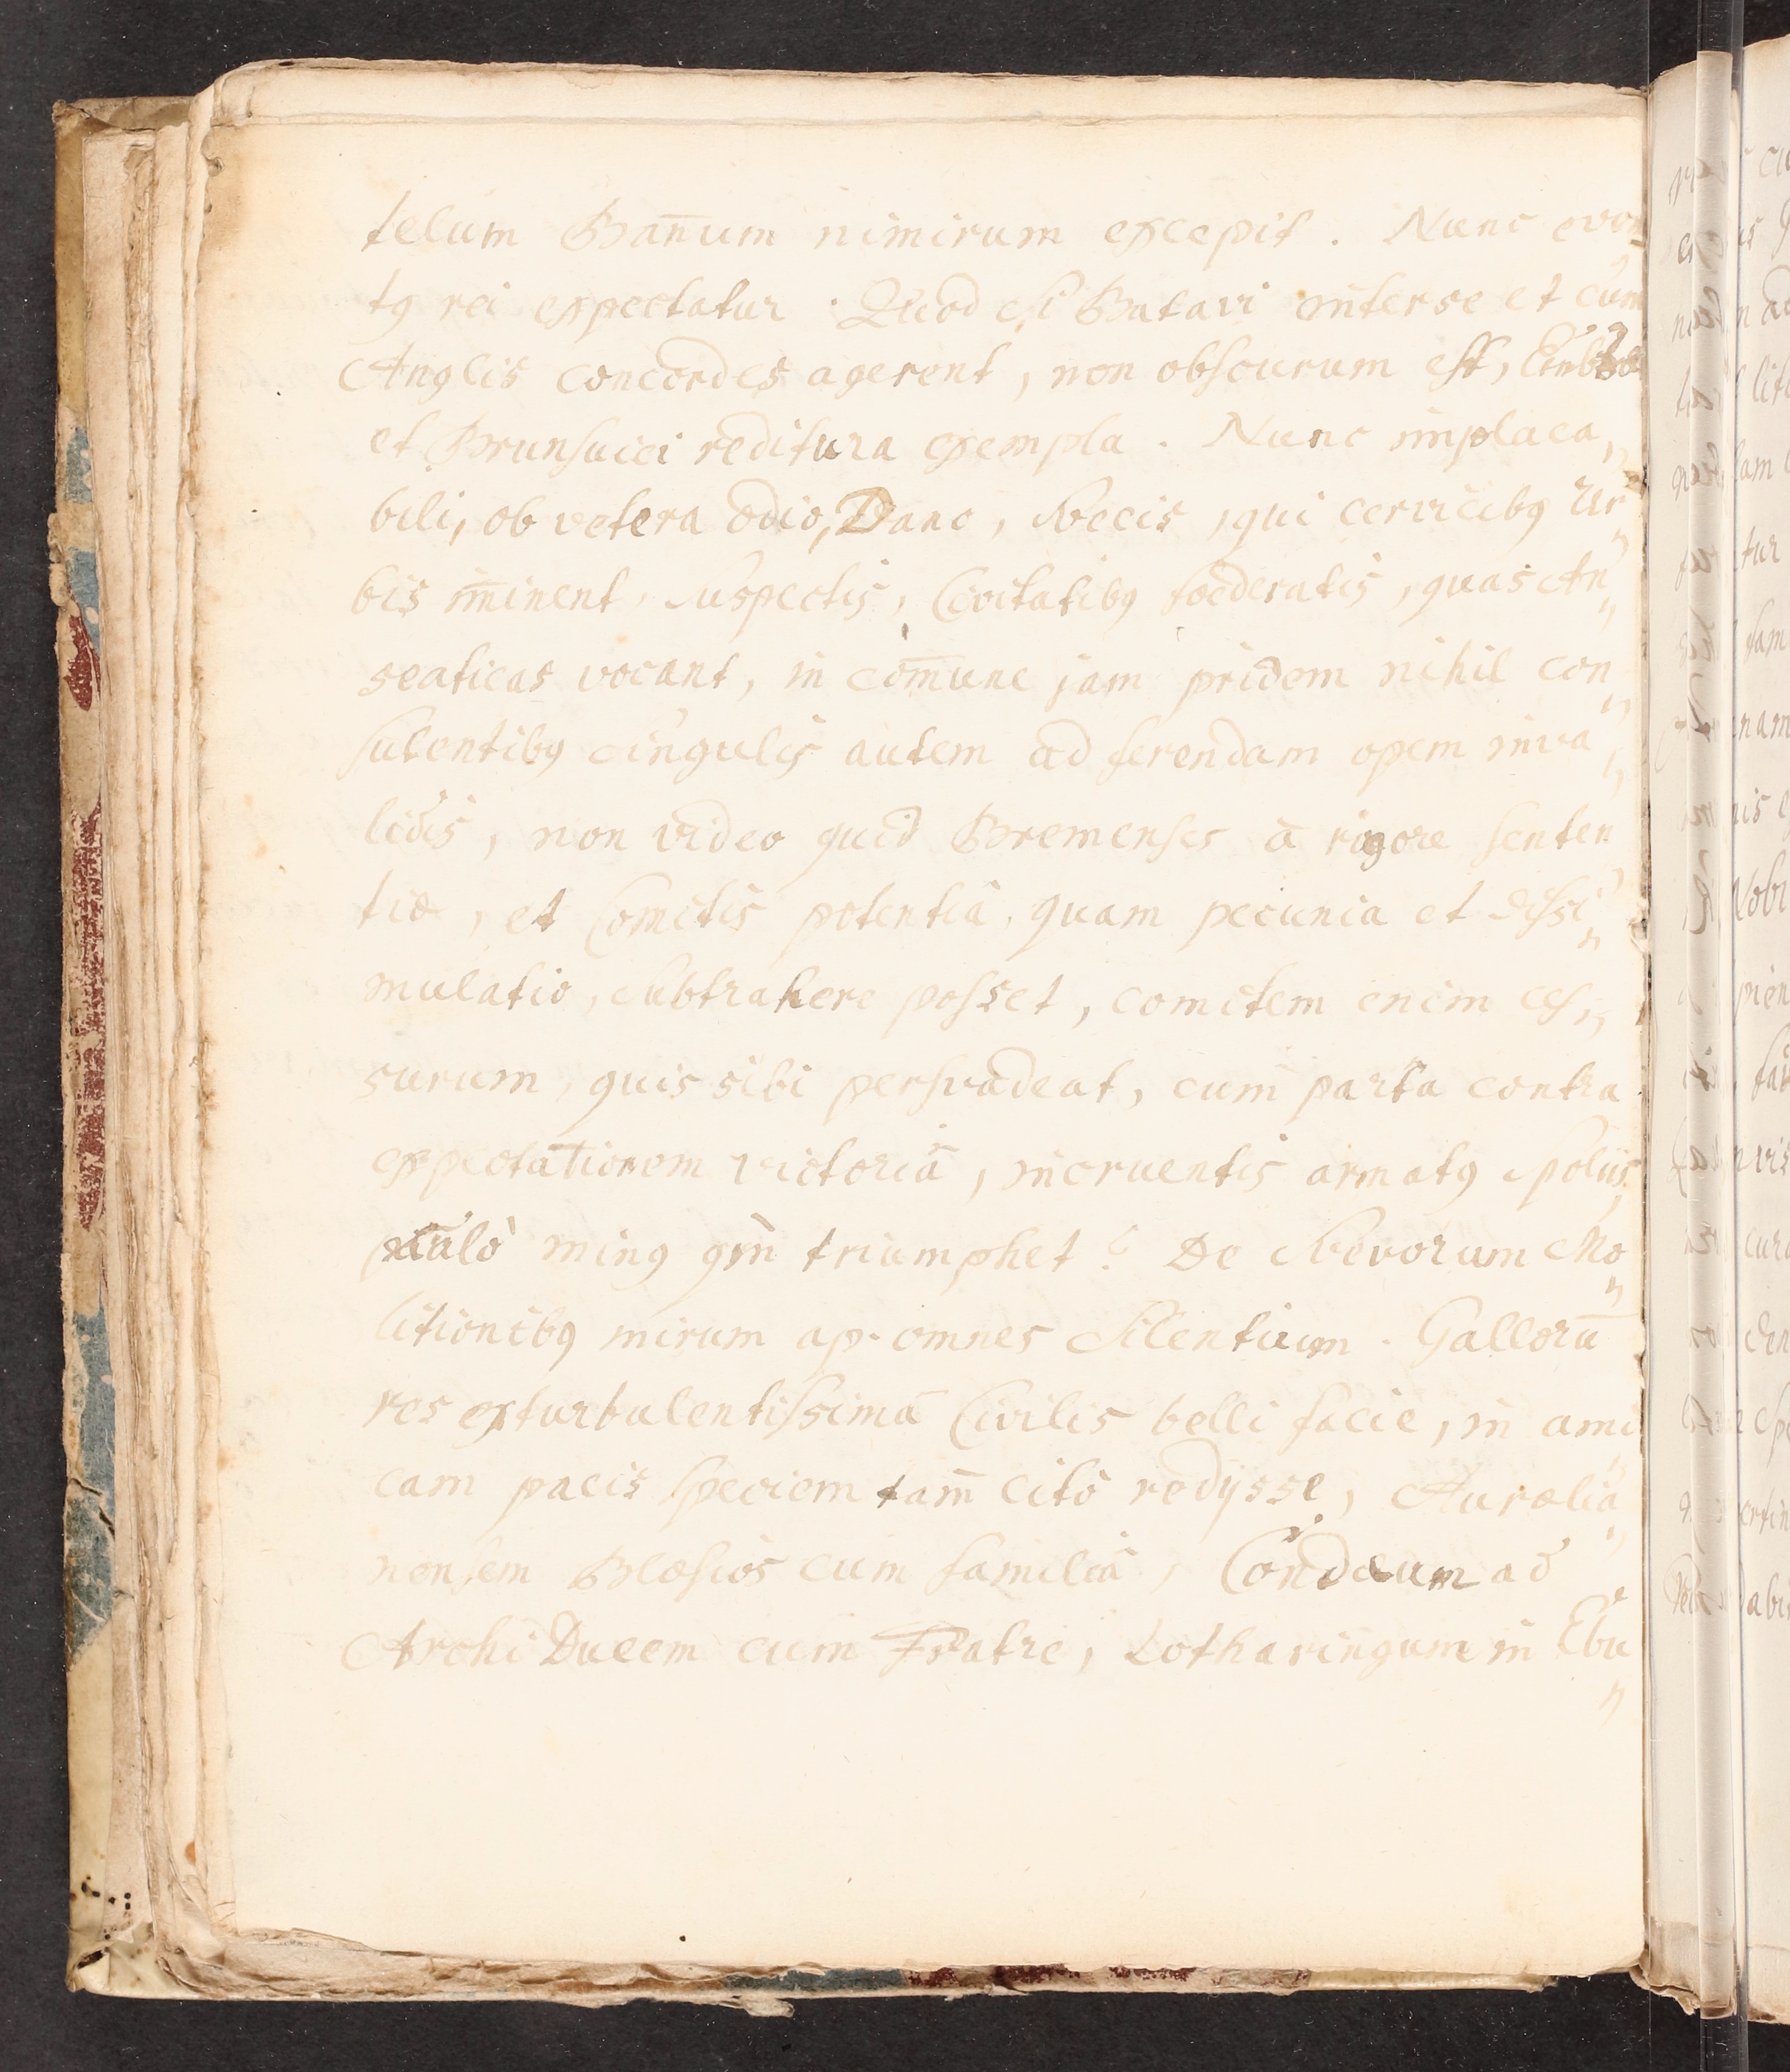 telum Bañum nimirum excepit. Nunc even
tꝰ rei expectatur. Quod si Batavi interse et cum
Anglis concordes agerent, non obscurum est,
et Brunsuici reditura exempla. Nunc implaca„
bili, ob vetera odio, Dano, Svecis, qui cervicibꝰ Ur„
bis im̄inent, suspectis, Civitatibꝰ foederatis, quas An„
seaticas vocant, in com̄une jam pridem nihil con„
sulentibꝰ singulis autem ad ferendam opem inva„
lidis, non video quid Bremenses à rigore senten„
tiæ, et Comitis potentiâ, quam pecunia et dissi„
mulatio, subtrahere posset, comitem enim ces„
surum, quis sibi persvadeat, cum parta contra
expectationem victoriâ, incruentis armatꝰ spoliis„
paulò minꝰ qm̄ triumphet? De Svevorum Mo„
litionibꝰ mirum ap. omnes Silentium. Gallorū
res ex turbulentissimâ Civilis belli facie, in ami„
cam pacis speciem tam̄ citò redijsse, Aurelia„
nensem Blæsios cum familiâ, Condæum ad
Archi Ducem cum Fratre, Lotharingum in Ebu„